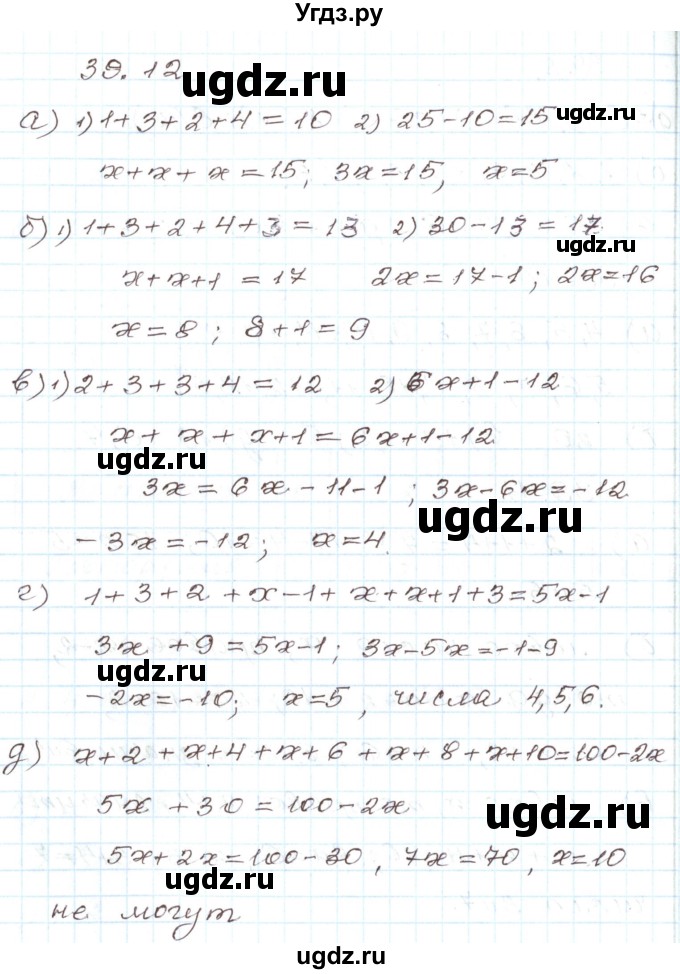 Угдз.ру
39.12
ugdz.ru
а) 1) 1+3+2+4=10 2) 25-10=15
x+x+x=15; 3x=15, x=5
б) 1) 1+3+2+4+3=13 2) 30-13=17
ugdz.ru
x+x+1=17 2x=17-1; 2x=16
x=8; 8+1=9
в) 1) 2+3+3+4=12 2) 6x+1-12
x+x+x+1=6x+1-12
ugdz.ru
3x=6x-11-1; 3x-6x=-12
ugdz.ru
-3x=-12; x=4.
г) 1+3+2+x-1+x+x+1+3=5x-1
3x+9=5x-1; 3x-5x=-1-9
ugdz.ru
-2x=-10; x=5, числа 4,5,6.
д) x+2+x+4+x+6+x+8+x+10=100-2x
5x+30=100-2x
ugdz.ru
5x+2x=100-30, 7x=70, x=10
ugdz.ru
не могут
ugdz.ru